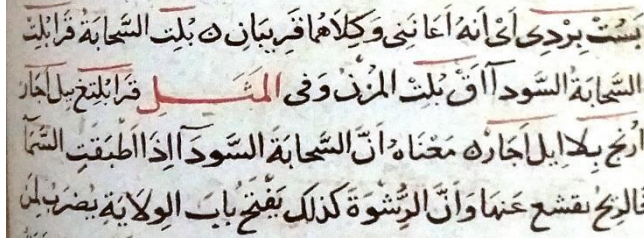 بست بردى اى انه اعاننى وكلاهما قريبان ۝ بلت السحابة قرابلت
السحابة السوداآ اق بلت المزن وفى المثل قرابلتغ ييل اجار
ارنج بلا ايل اجار ۝ معناه ان السحابة السوداآ اذا اطبقت السما
فالريح يقشع عنها وان الرشوة كذلك يفتح باب الولاية يضرب لمن